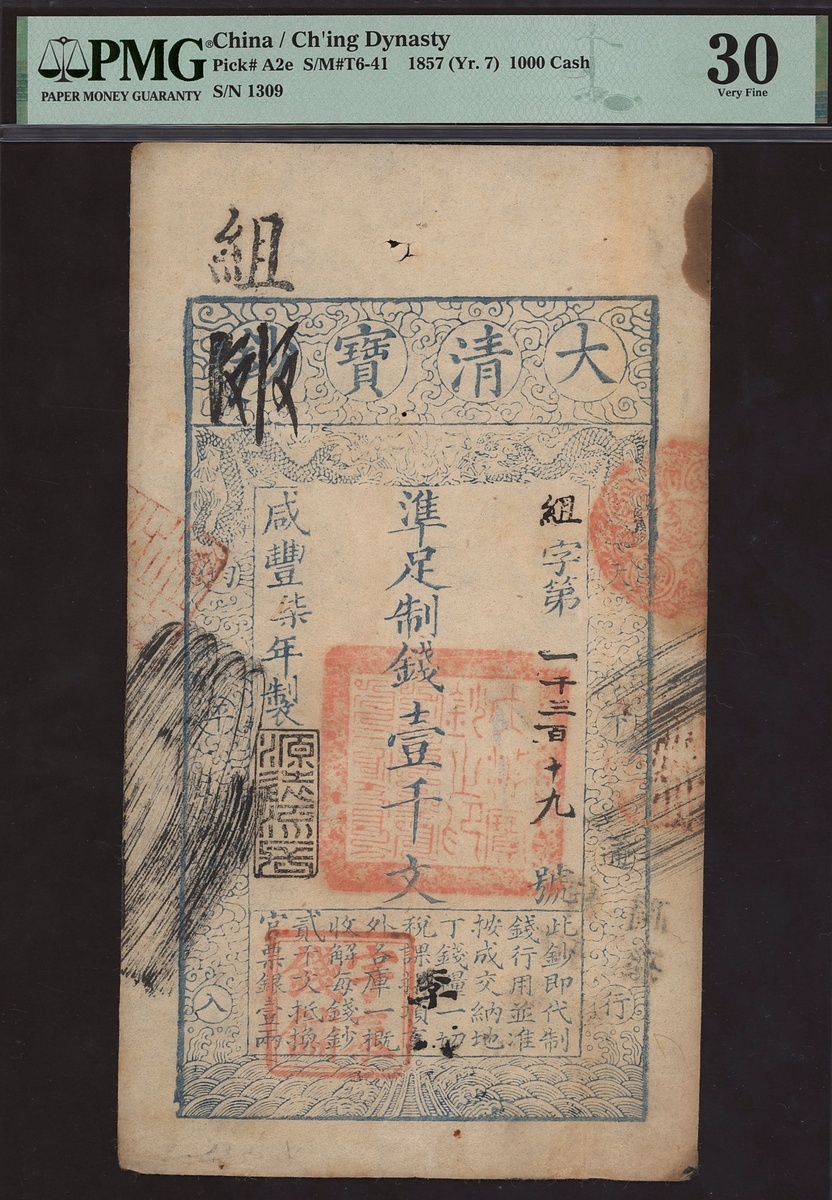 PMG® China / Ch'ing Dynasty
Pick# A2e S/M#T6-41 1857 (Yr. 7) 1000 Cash
PAPER MONEY GUARANTY S/N 1309
30
Very Fine
組
大清寶鈔
組字第一千三百十九號
準足制錢壹千文
咸豐柒年製
天下通行
均平出入
此鈔即代制
錢行用並准
按成交納地
丁錢糧一切
稅課捐項
外各庫一概
收解每錢鈔
貳千文抵換
官票銀壹兩